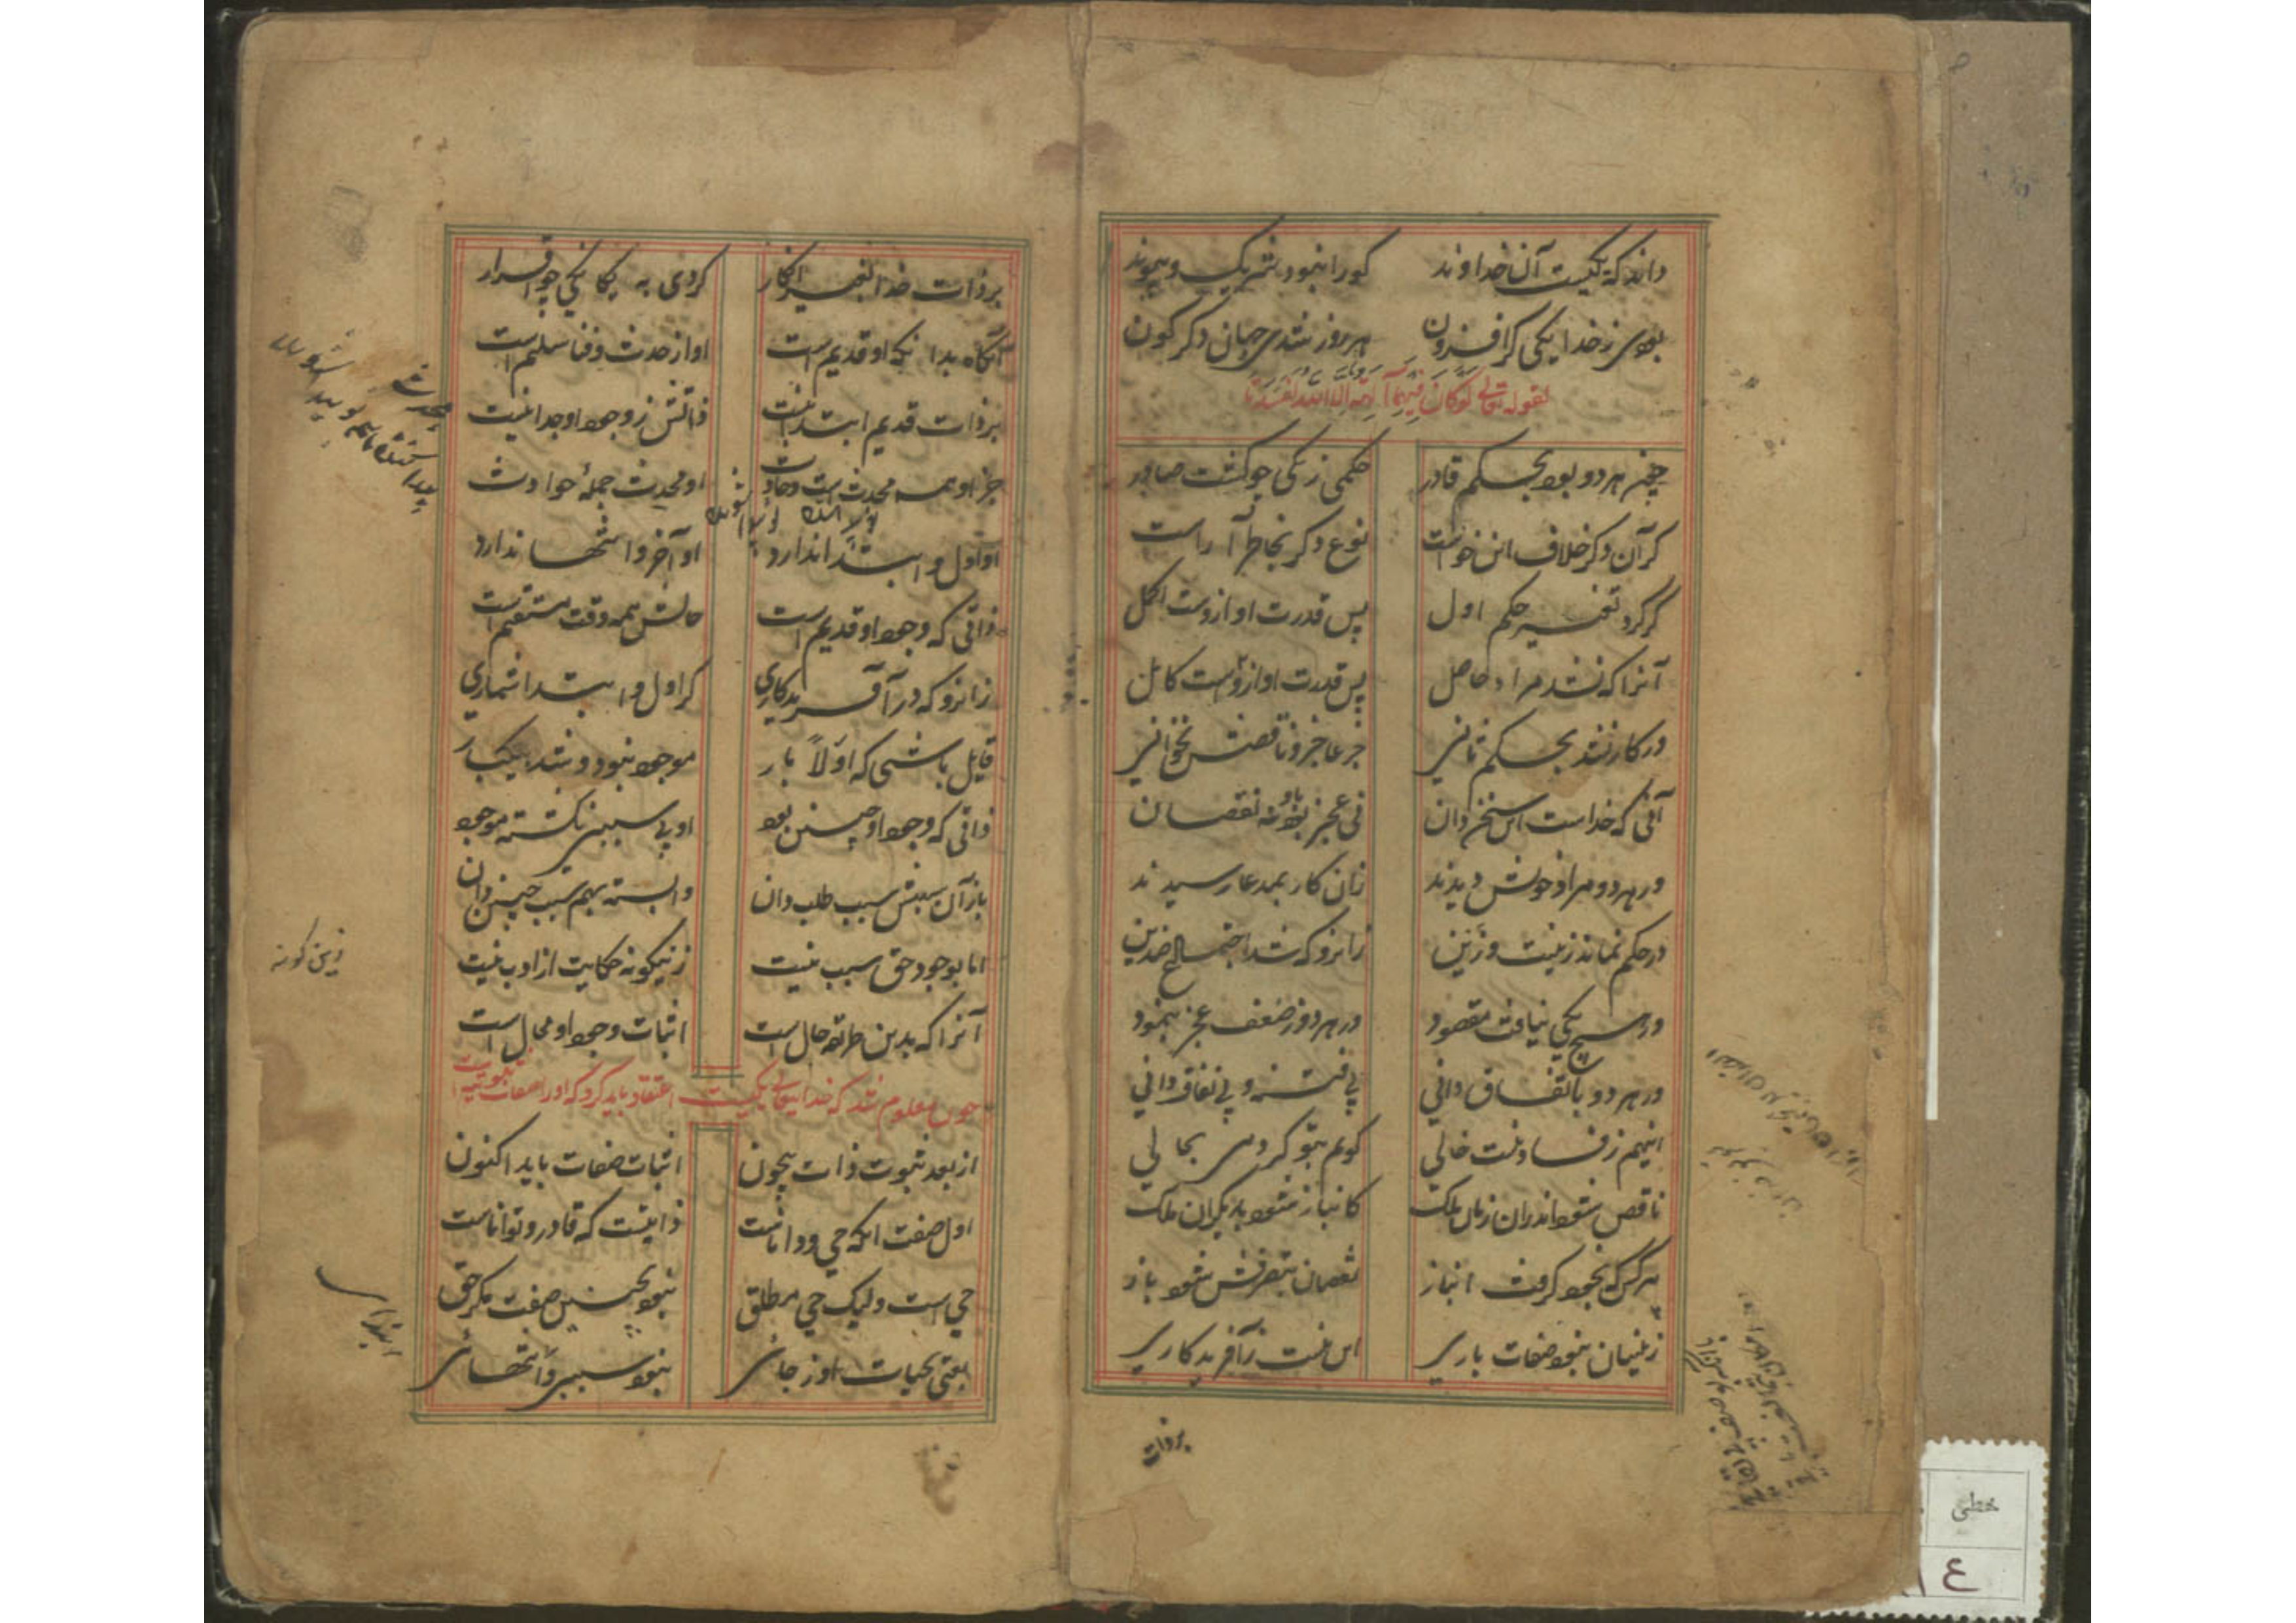 داند که یکیست آن خداوند کورا نبود شریک و پیوند
بودی ز خدا یکی گر افزون هر روز شدی جهان دگرگون
لقوله تعالی لَوْ کَانَ فِیهِمَا آلِهَةٌ إِلَّا اللَّهُ لَفَسَدَتَا
چون هر دو بود بحکم قادر حکمی ز یکی چو گشت صادر
گر آن دگر خلاف این خواست نوع دگر بخاطر آراست
گر کرد تغییر حکم اول پس قدرت او ازوست اکمل
آنرا که نشد مراد حاصل پس قدرت او ازوست کامل
ور کار نشد بحکم ثانی جز عاجز و ناقصش نخوانی
آنی که خداست این سخن دان نی عجز بود نه نقصان
ور هر دو مراد خویش دیدند زان کار بمدعا رسیدند
در حکم نماند زینت و زین زانرو که شد اجتماع ضدین
ور هیچ یکی نیافت مقصود در هر دو ز ضعف عجز بنمود
ور هر دو باتفاق دانی بی فتنه و بی نفاق دانی
اینهم ز فساد نیست خالی گویم بتو گر دمی بحالی
ناقص شود اندران زمان ملک کانباز شود بدیگران ملک
هر کس که بخود گرفت انباز نقصان بتصرفش شود باز
زینسان نبود صفات باری این نیست ز آفریدکاری
بر ذات
بر ذات خدا بغیر انکار کردی به یکانکی چو اقرار
آنگاه بدانکه او قدیم است او از حدث و فنا سلیم است
بر ذات قدیم ابتدا نیست ذاتش ز وجود او جدا نیست
جز او همه محدث است و حادث او محدث جمله حوادث
او اول و ابتدا ندارد او آخر و انتها ندارد
ذاتی که وجود او قدیم است حالش همه وقت مستقیم است
زانرو که در آفریدکاری گر اول و ابتدا شماری
قایل باشی که اولا بار موجود نبود و شد بیکبار
ذاتی که وجود او چنین بود او بی سببی نگشته موجود
باز آن سببش سبب طلب دان وابسته بهم سبب چنین دان
اما بوجود حق سبب نیست زینگونه حکایت از ادب نیست
آنرا که بدین طریقه حال است اثبات وجود او محال است
چون معلوم شد که خدایتعالی یکیست اعتقاد باید کرد که او را صفات ثبوتیه است
از بعد ثبوت ذات بیچون اثبات صفات باید اکنون
اول صفت آنکه حی و داناست ذاتیست که قادر و تواناست
حی است ولیک حی مطلق نبود بچنین صفت مگر حق
یعنی بحیات او ز جائی نبود سببی و انتهائی
زین گونه
خطی